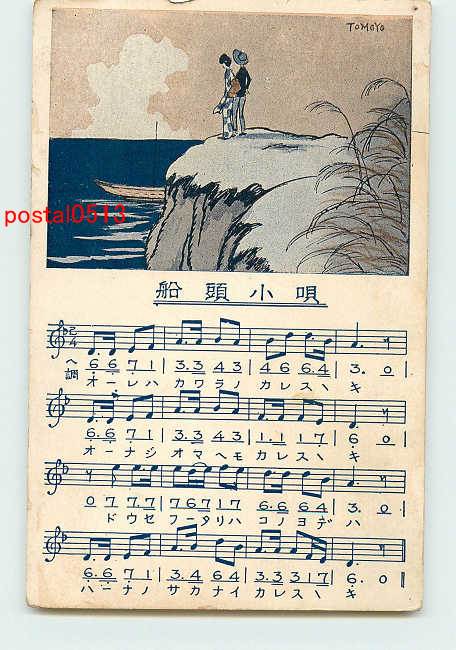 TOMOYO
postal0513
船頭小唄
2/4
ヘ調
6. 6 7 1 | 3. 3 4 3 | 4 6 6. 4 | 3. 0
オーレハ カワラノ カレスヽキ
6. 6 7 1 | 3. 3 4 3 | 1. 1 1 7 | 6. 0
オーナジ オマヘモ カレスヽキ
0 7 7. 7 | 7 6 7 1 7 | 6 6 6 4 | 3. 0
ドウセ フータリハ コノヨデハ
6. 6 7 1 | 3. 4 6 4 | 3. 3 3 1 7 | 6. 0
ハーナノ サカナイ カレスヽキ